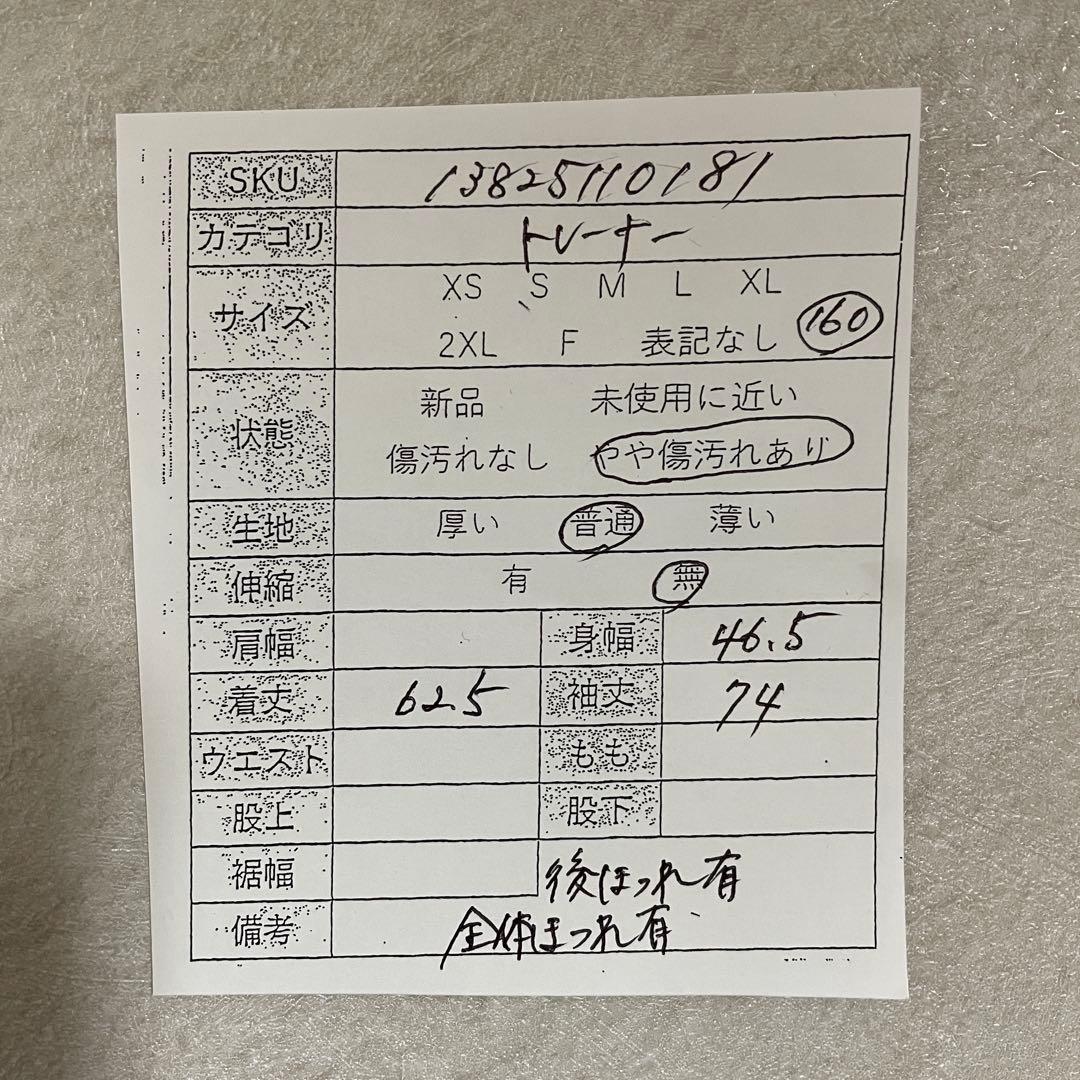 SKU 13825110181
カテゴリ トレーナー
サイズ XS S M L XL
2XL F 表記なし 160
状態 新品 未使用に近い
傷汚れなし やや傷汚れあり
生地 厚い 普通 薄い
伸縮 有 無
肩幅 身幅 46.5
着丈 62.5 袖丈 74
ウエスト もも
股上 股下
裾幅 後ほつれ有
備考 全体ほつれ有